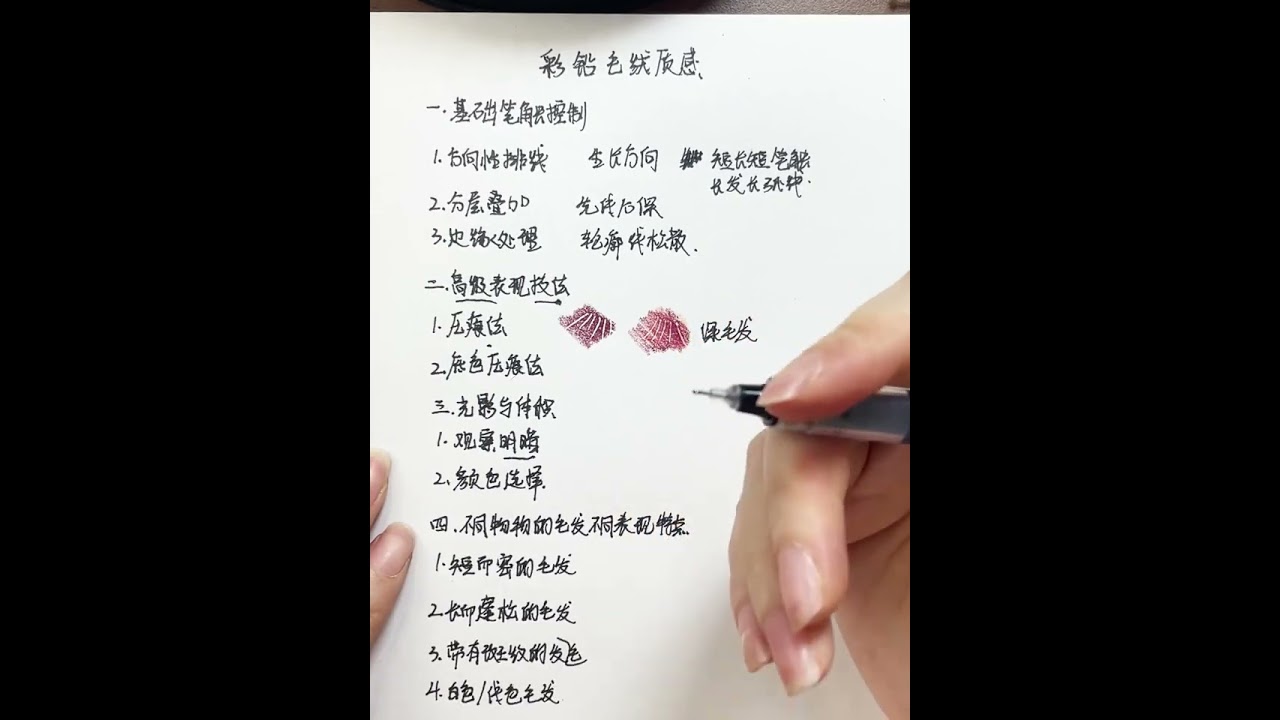 彩铅毛绒质感
一.基础笔触控制
1.方向性排线 生长方向 短长短笔触
长发长弧线.
2.分层叠加 先浅后深
3.边缘处理 轮廓线松散.
二.高级表现技法
1.压痕法 深毛发
2.底色压痕法
三.光影与体积
1.观察明暗
2.颜色选择.
四.不同物种的毛发不同表现特点
1.短而密的毛发
2.长而蓬松的毛发
3.带有斑纹的发毛
4.白色/浅色毛发